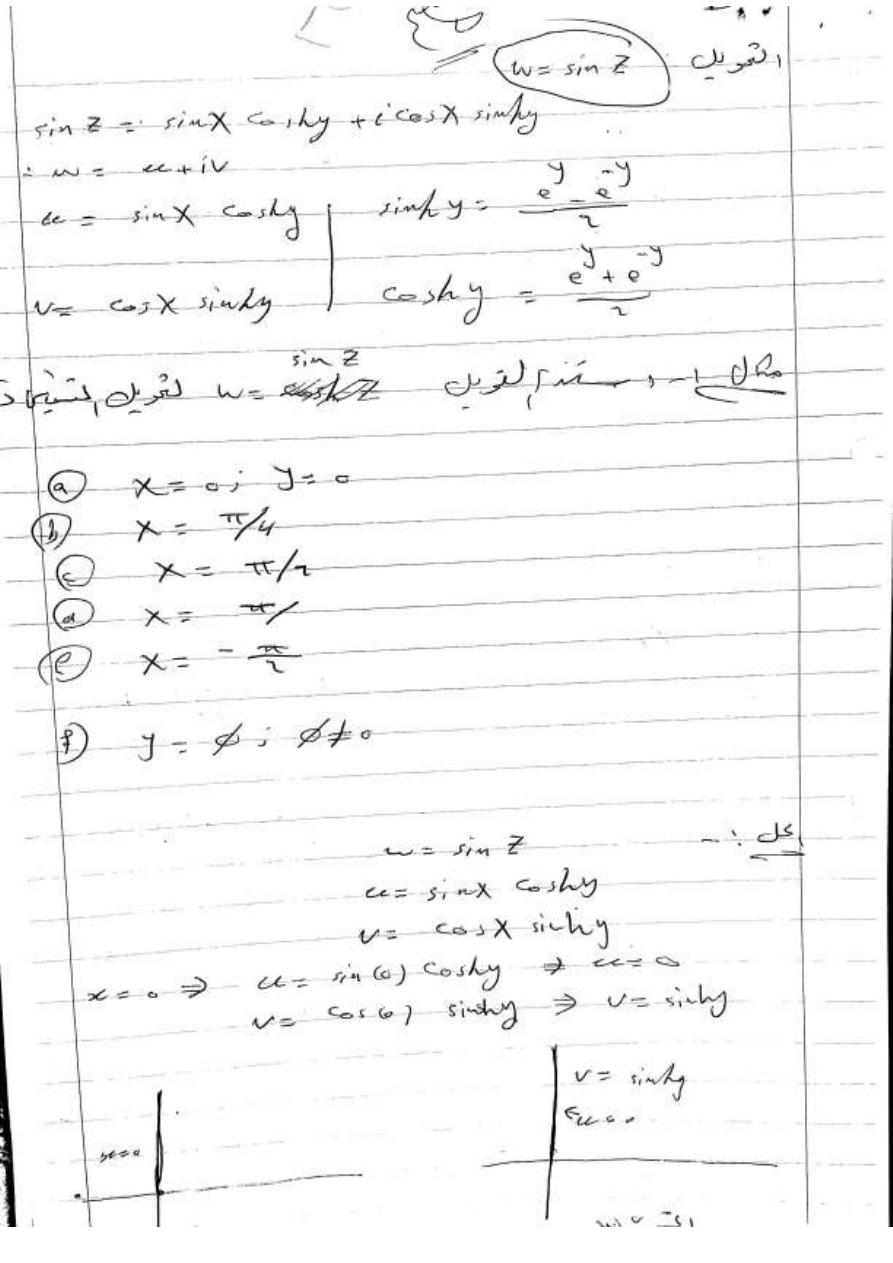 التحويل w = sin z
sin z = sin x cosh y + i cos x sinh y
∴ w = u + iv
u = sin x cosh y | sinh y = (e^y - e^-y)/2
v = cos x sinh y | cosh y = (e^y + e^-y)/2
مثال 1- التحويل w = sin z لتحويل
(a) x = 0 ; y = 0
(b) x = π/4
(c) x = π/2
(d) x = π/
(e) x = - π/2
(f) y = ø ; ø ≠ 0
الحل :-
w = sin z
u = sin x cosh y
v = cos x sinh y
x = 0 ⇒ u = sin(0) cosh y ⇒ u = 0
v = cos(0) sinh y ⇒ v = sinh y
v = sinh y
u = 0
x = 0